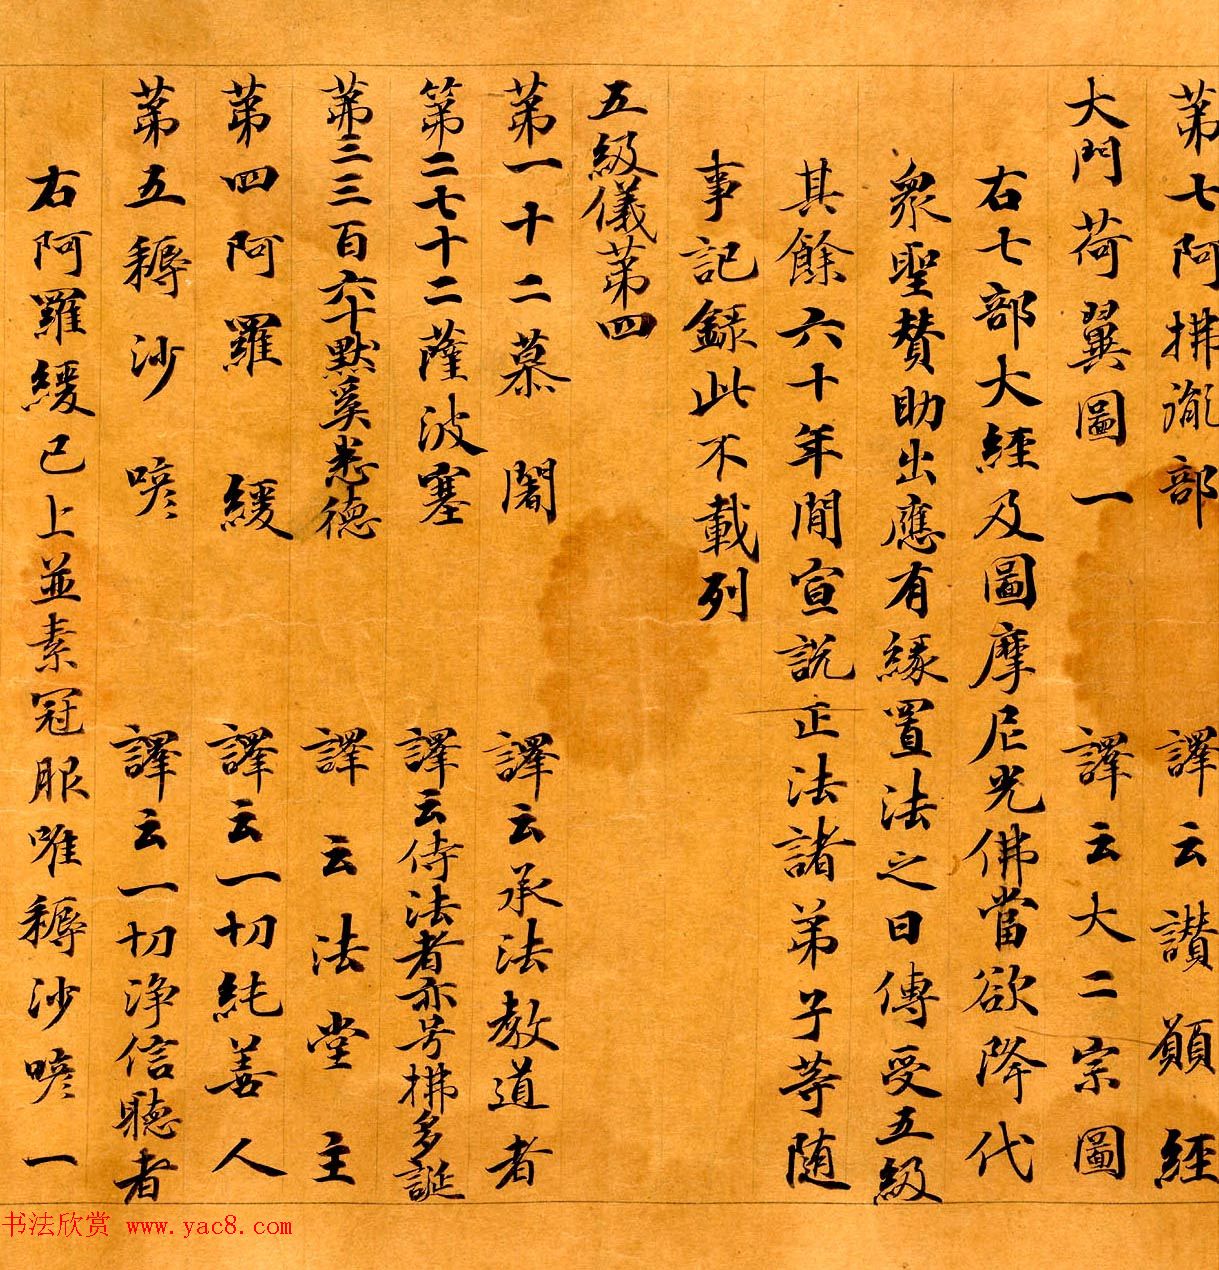 第七阿拂胤部 譯云讚願經
大門荷翼圖一 譯云大二宗圖
右七部大經及圖摩尼光佛當欲降代
衆聖賛助出應有緣置法之日傳受五級
其餘六十年間宣説正法諸弟子等随
事記録此不載列
五級儀第四
第一十二慕闍 譯云承法教道者
第二七十二薩波塞 譯云侍法者亦号拂多誕
第三三百六十默奚悉德 譯云法堂主
第四阿羅緩 譯云一切純善人
第五耨沙喭 譯云一切浄信聽者
右阿羅緩已上並素冠服唯耨沙喭一
书法欣赏 www.yac8.com